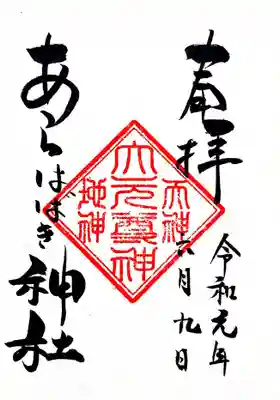 奉拝
令和元年
六月九日
天神
大元神
地神
あらはばき神社